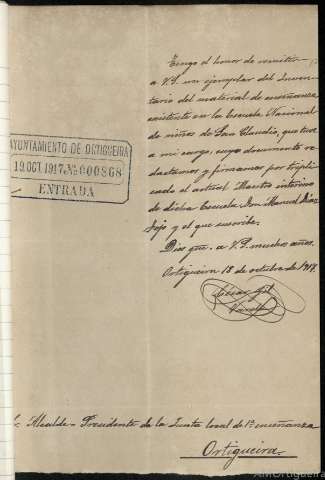 Tengo el honor de remitir
a V.S. un ejemplar del Inven-
tario del material de enseñanza
existente en la Escuela Nacional
de niños de San Claudio, que tuve
a mi cargo, cuyo documento re-
dactamos y firmamos por tripli-
cado el actual Maestro interino
de dicha Escuela Don Manuel Díaz
y el que suscribe.
Dios gue. a V.S. muchos años.
Ortigueira 18 de octubre de 1917.
César Gil
AYUNTAMIENTO DE ORTIGUEIRA
19 OCT. 1917 Nº 000868
ENTRADA
Alcalde-Presidente de la Junta local de 1ª enseñanza
Ortigueira.
AMOrtigueira